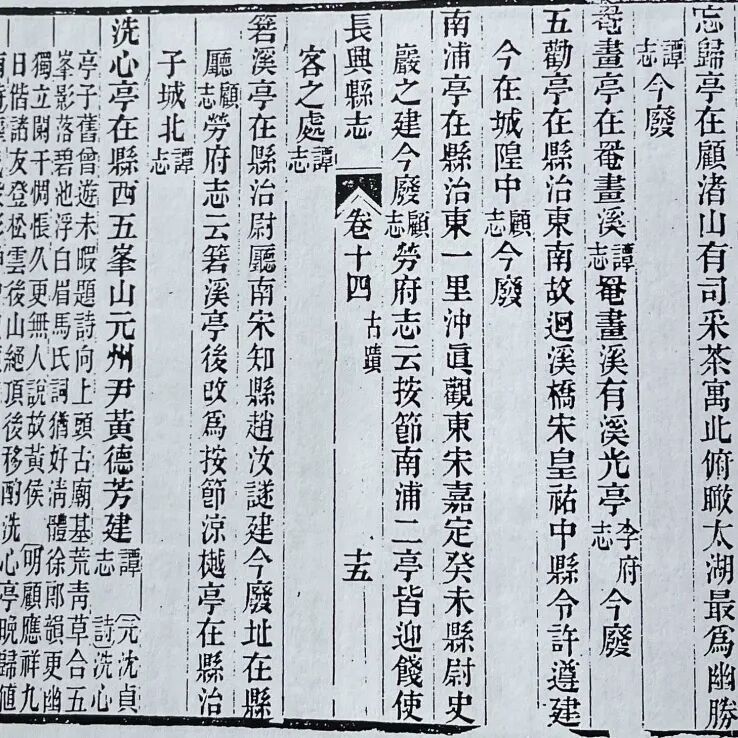 忘歸亭在顧渚山有司采茶寓此俯瞰太湖最爲幽勝
譚志今廢
罨畫亭在罨畫溪譚志罨畫溪有溪光亭李府志今廢
五勸亭在縣治東南故迴溪橋宋皇祐中縣令許遵建
今在城隍中顧志今廢
南浦亭在縣治東一里沖眞觀東宋嘉定癸未縣尉史
巖之建今廢顧志勞府志云按節南浦二亭皆迎餞使
長興縣志 卷十四 古蹟 十五
客之處譚志
箬溪亭在縣治尉廳南宋知縣趙汝謎建今廢址在縣
廳顧志勞府志云箬溪亭後改爲按節涼樾亭在縣治
子城北譚志
洗心亭在縣西五峯山元州尹黃德芳建譚志元沈貞詩洗心
亭子舊曾遊未暇題詩向上頭古廟基荒青草合五
峯影落碧池浮白眉馬氏詞猶好淸體徐郎韻更幽
獨立闌干惆悵久更無人說故黃侯明顧應祥九
日偕諸友登松雲後山絕頂後移酌洗心亭晚歸値